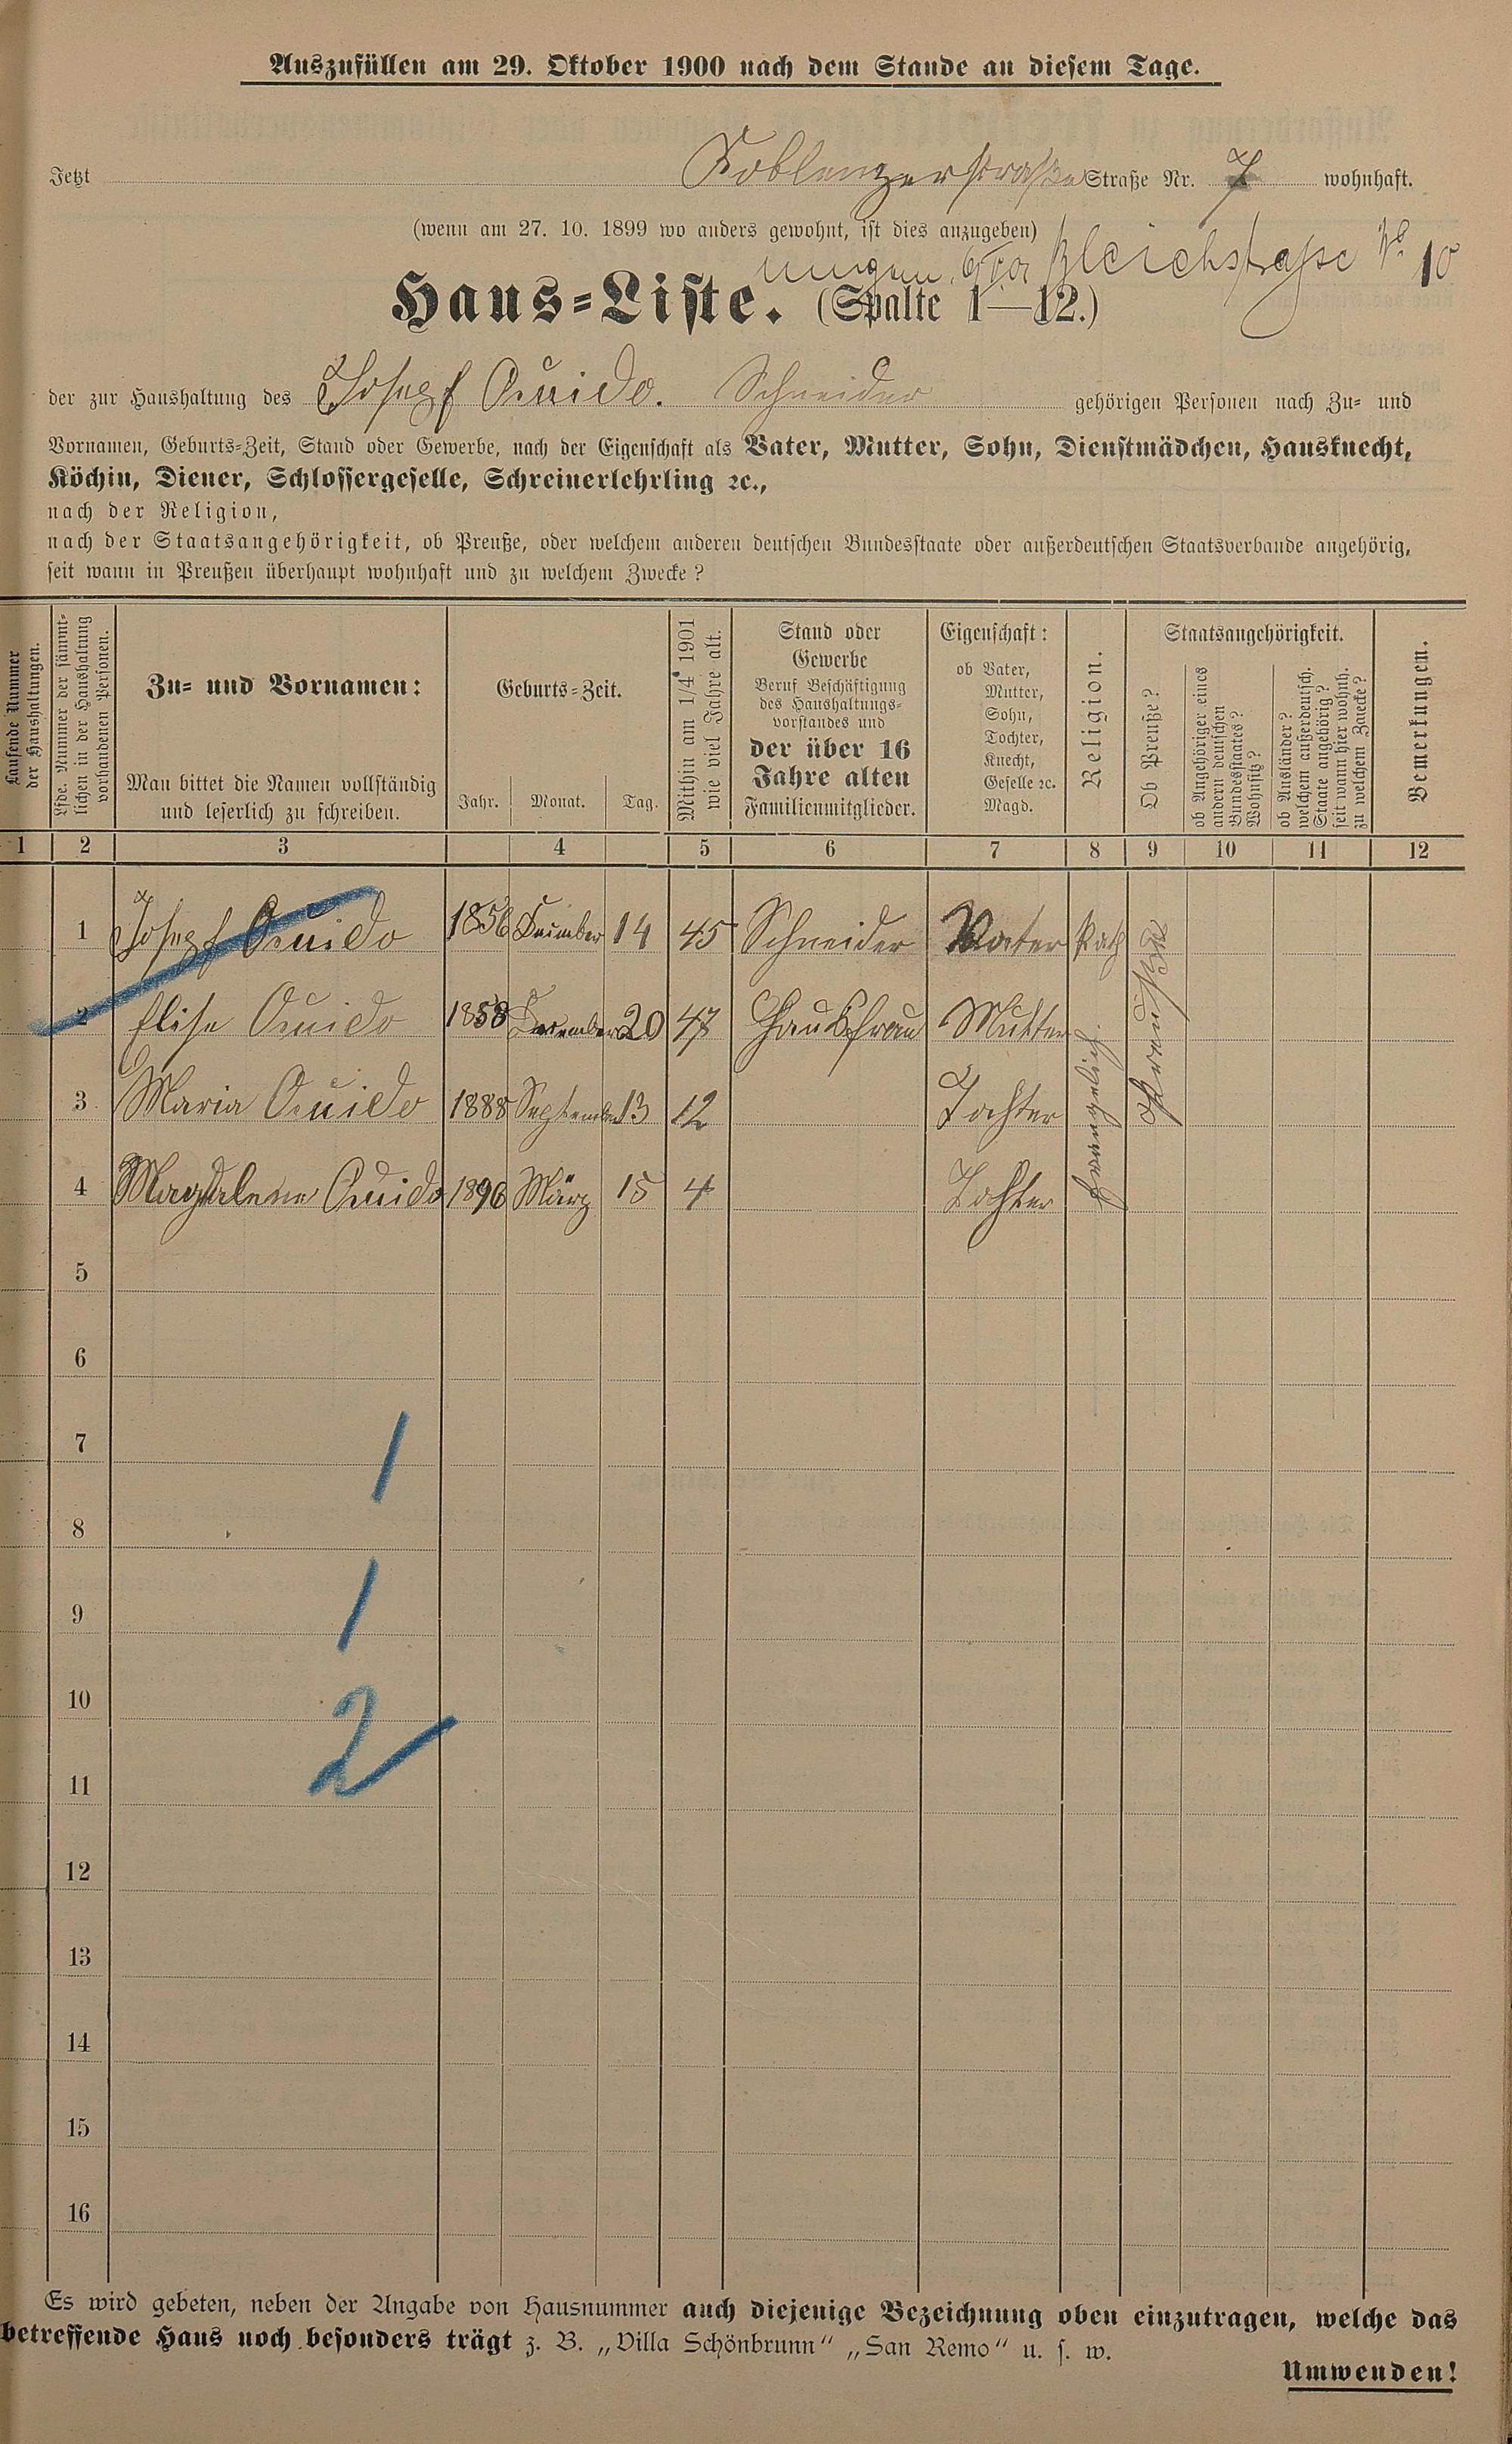 Auszufüllen am 29. Oktober 1900 nach dem Stande an diesem Tage.
Jetzt Koblenzerstraße Straße Nr. 7 wohnhaft.
(wenn am 27. 10. 1899 wo anders gewohnt, ist dies anzugeben)
Bleichstraße No 10
Haus=Liste. (Spalte 1—12.)
der zur Haushaltung des Josef Quido. Schneider gehörigen Personen nach Zu= und
Vornamen, Geburts=Zeit, Stand oder Gewerbe, nach der Eigenschaft als Vater, Mutter, Sohn, Dienstmädchen, Hausknecht,
Köchin, Diener, Schlossergeselle, Schreinerlehrling ꝛc.,
nach der Religion,
nach der Staatsangehörigkeit, ob Preuße, oder welchem anderen deutschen Bundesstaate oder außerdeutschen Staatsverbande angehörig,
seit wann in Preußen überhaupt wohnhaft und zu welchem Zwecke?
Laufende Nummer der Haushaltungen.
Lfde. Nummer der sämmtlichen in der Haushaltung vorhandenen Personen.
Zu= und Vornamen:
Man bittet die Namen vollständig
und leserlich zu schreiben.
Geburts=Zeit.
Jahr. Monat. Tag.
Mithin am 1/4 1901
wie viel Jahre alt.
Stand oder
Gewerbe
Beruf Beschäftigung
des Haushaltungs=
vorstandes und
der über 16
Jahre alten
Familienmitglieder.
Eigenschaft:
ob Vater,
Mutter,
Sohn,
Tochter,
Knecht,
Geselle ꝛc.
Magd.
Religion.
Staatsangehörigkeit.
Ob Preuße?
ob Angehöriger eines
andern deutschen
Bundesstaates?
Wohnsitz?
ob Ausländer?
welchem außerdeutsch.
Staate angehörig?
seit wann hier wohnh.
zu welchem Zwecke?
Bemerkungen.
1 2 3 4 5 6 7 8 9 10 11 12
1 Josef Quido 1856 Dezember 14 45 Schneider Vater Kath
2 Elise Quido 1858 Dezember 20 47 Hausfrau Mutter
3 Maria Quido 1888 September 13 12 Tochter
4 Magdalena Quido 1896 März 15 4 Tochter
evangelisch
Preuße
5
6
7
1
8
9
1
10
2
11
12
13
14
15
16
Es wird gebeten, neben der Angabe von Hausnummer auch diejenige Bezeichnung oben einzutragen, welche das
betreffende Haus noch besonders trägt z. B. „Villa Schönbrunn“ „San Remo“ u. s. w.
Umwenden!